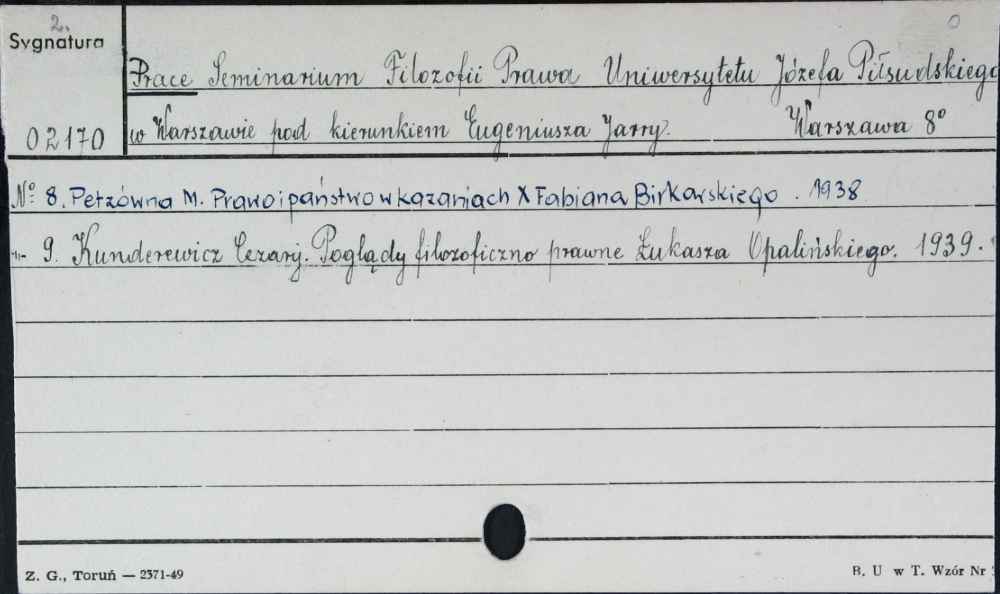 2.
Sygnatura
0
Prace Seminarium Filozofii Prawa Uniwersytetu Józefa Piłsudskiego
02170
w Warszawie pod kierunkiem Eugeniusza Jarry. Warszawa 8°
№ 8. Petzówna M. Prawo i państwo w kazaniach X Fabiana Birkowskiego. 1938
-"- 9. Kunderewicz Cezary. Poglądy filozoficzno prawne Łukasza Opalińskiego. 1939.
Z. G., Toruń — 2371-49
B. U w T. Wzór Nr